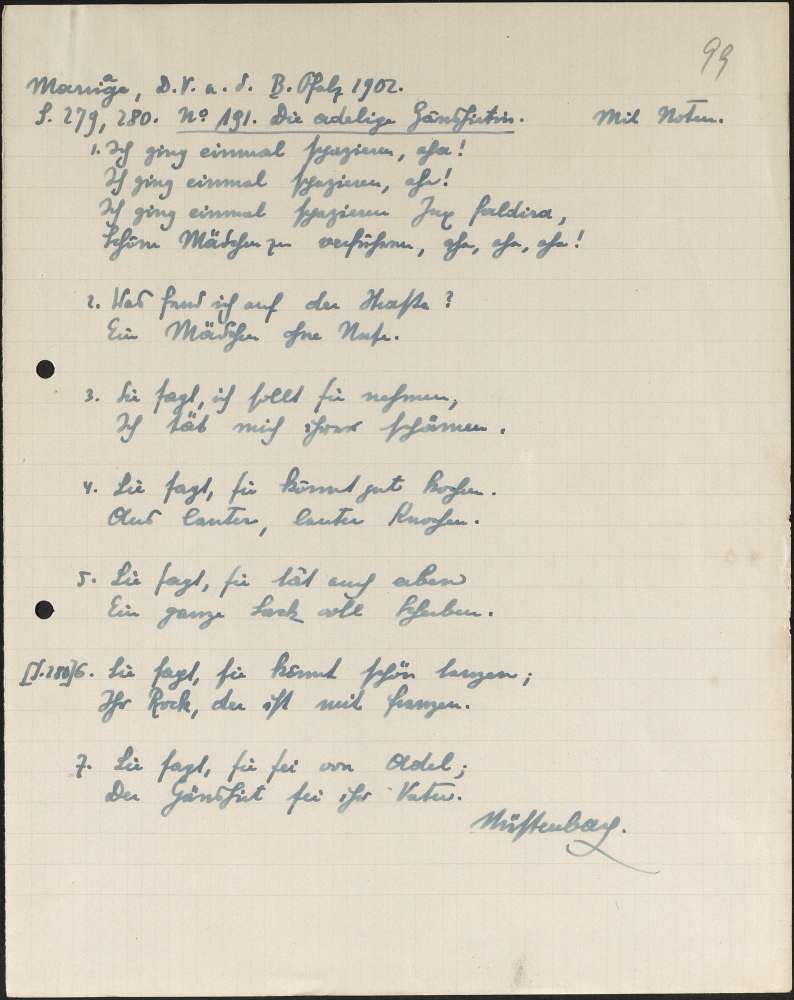 99
Marriage, D.V. a. d. B. Pfalz 1902.
S. 279, 280. No 191. Die adelige Gänshirtin. Mit Noten.
1. Ich ging einmal spazieren, aha!
Ich ging einmal spazieren, aha!
Ich ging einmal spazieren Jux faldira,
Schöne Mädchen zu verführen, aha, aha, aha!
2. Was fand ich auf der Straße?
Ein Mädchen ohne Nase.
3. Sie sagt, ich sollt sie nehmen,
Ich tät mich ihrer schämen.
4. Sie sagt, sie könnt gut kochen.
Aus lauter, lauter Knochen.
5. Sie sagt, sie tät auch aben
Ein ganze Sack voll Schaben.
[S. 280] 6. Sie sagt, sie könnt schön tanzen;
Ihr Rock, der ist mit Franzen.
7. Sie sagt, sie sei von Adel;
Der Gänshirt sei ihr Vater.